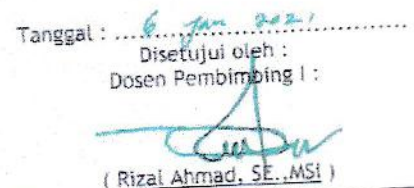 Tanggal : ...6 Jan 2021...
Disetujui oleh :
Dosen Pembimbing I :
( Rizal Ahmad, SE.,MSi )